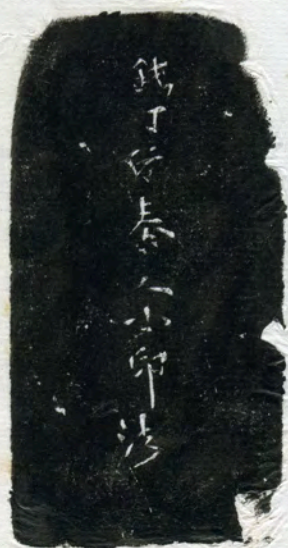 鈍丁仿秦人小印法